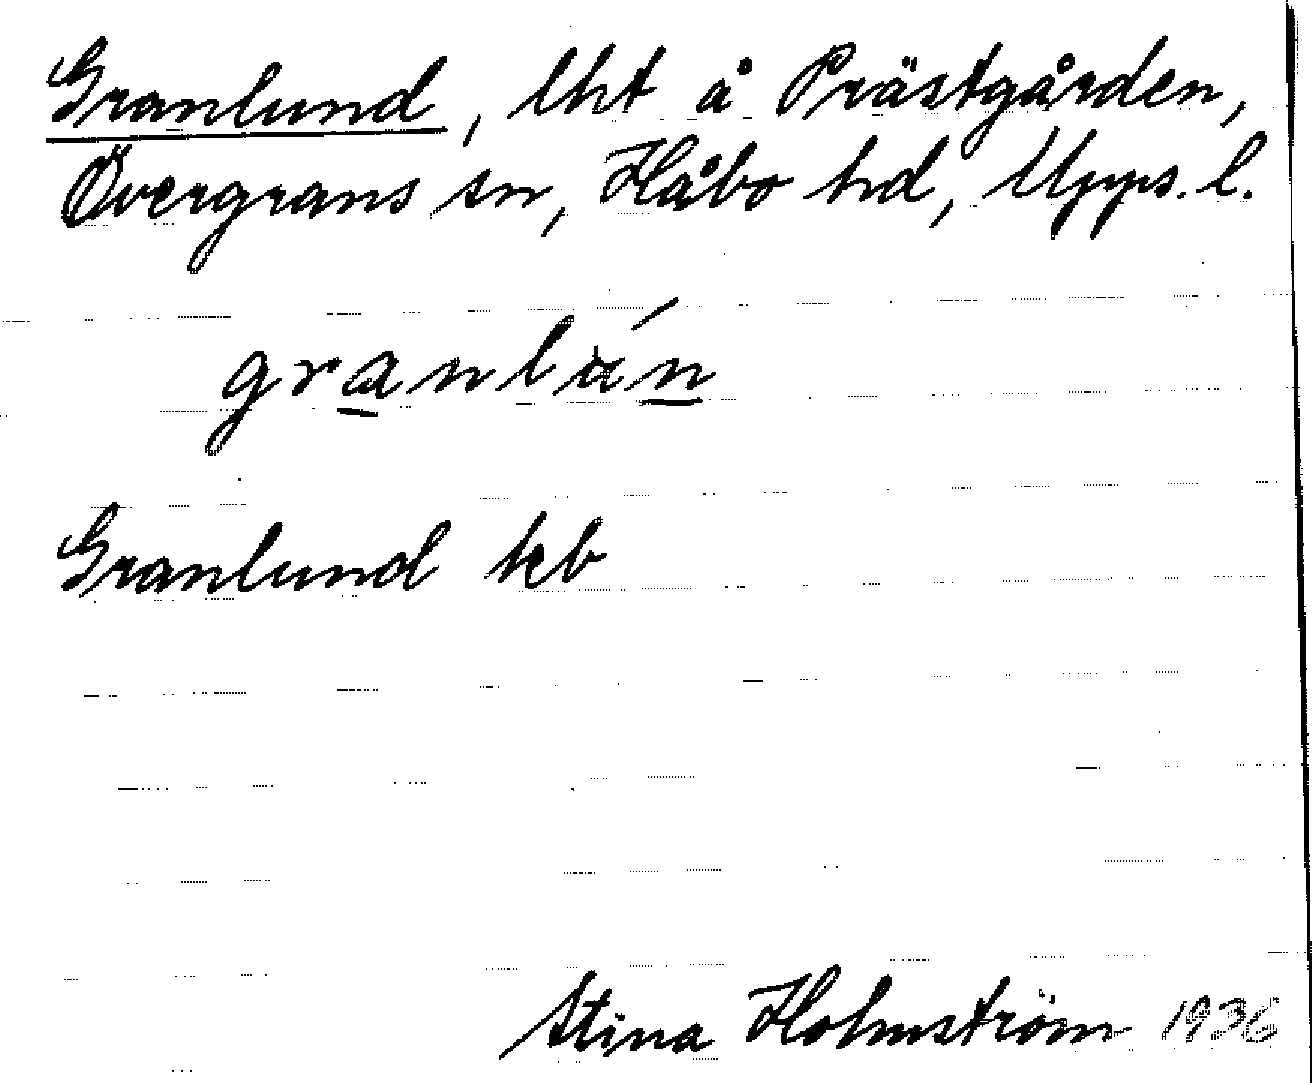 Granlund, lht å Prästgården,
Övergrans sn, Håbo hd, Upps. l.
Granlund kb
Stina Holmström 1936